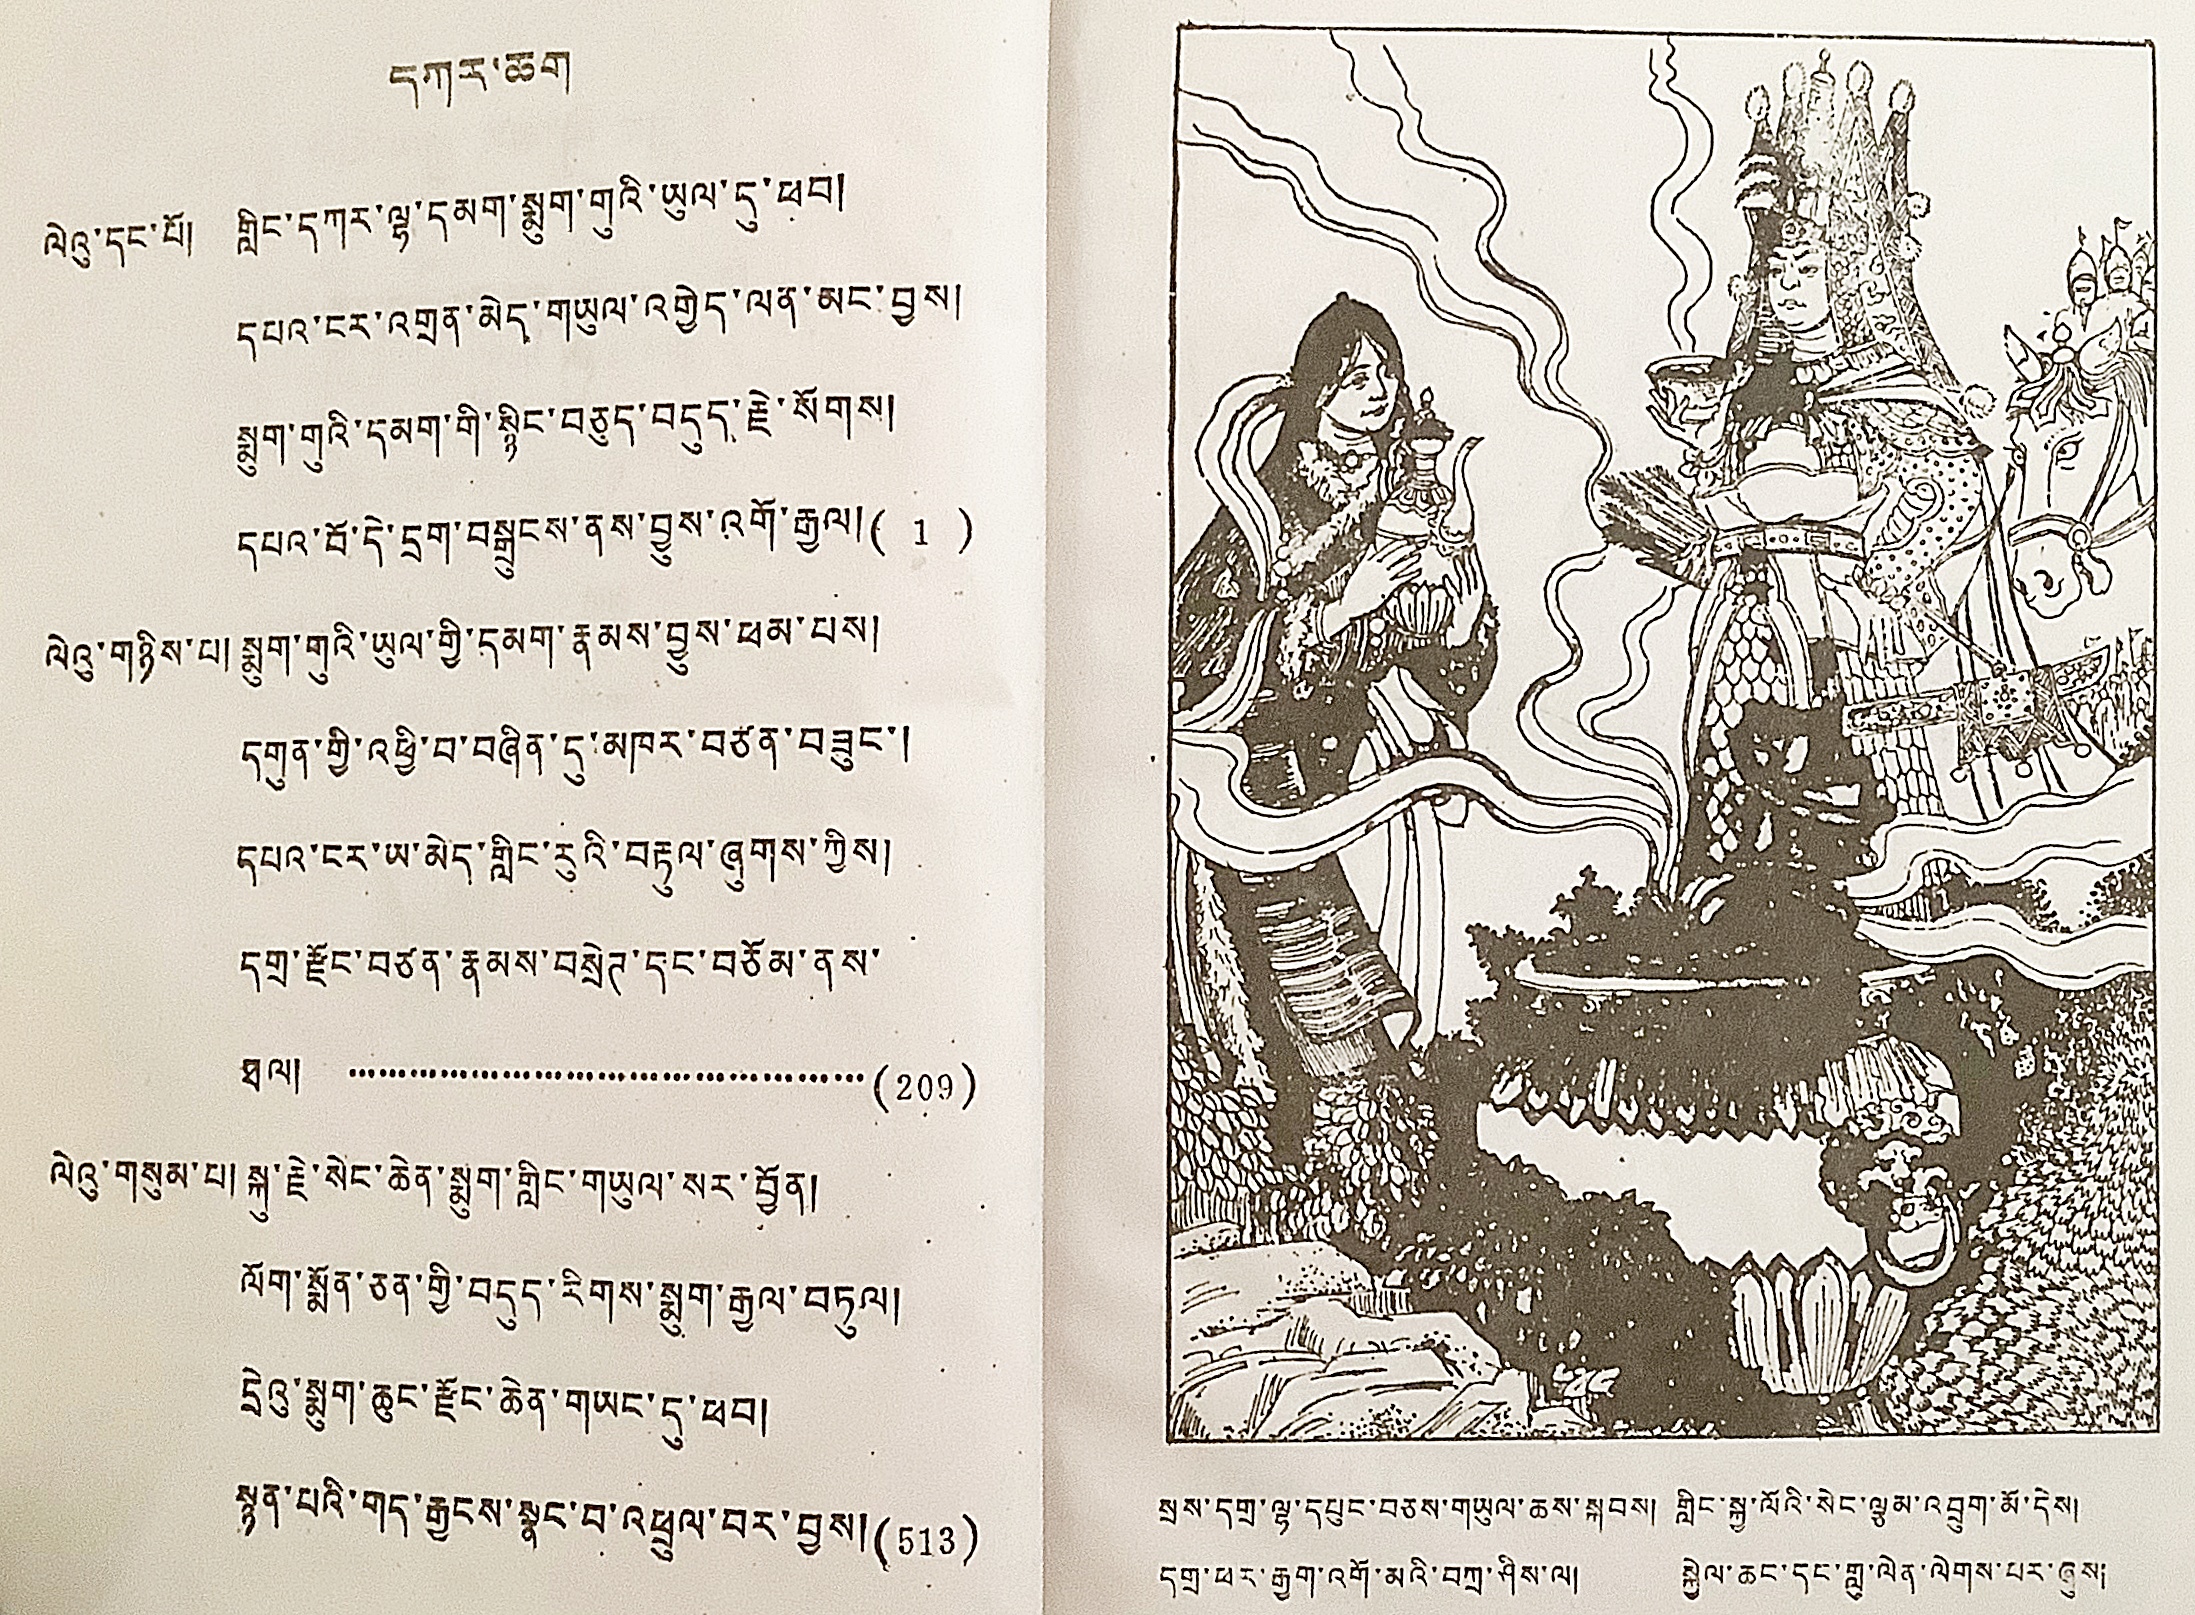 དཀར་ཆག
ལེའུ་དང་པོ། གླིང་དཀར་ལྷ་དམག་སྨུག་གུའི་ཡུལ་དུ་ཕབ།
དཔའ་ངར་འགྲན་མེད་གཡུལ་འགྱེད་ལན་མང་བྱས།
སྨུག་གུའི་དམག་གི་སྙིང་བཅུད་བདུད་རྗེ་སོགས།
དཔའ་བོ་དེ་དྲག་བསྒྲུངས་ནས་བྱུས་འགོ་རྒྱལ། ( 1 )
ལེའུ་གཉིས་པ། སྨུག་གུའི་ཡུལ་གྱི་དམག་རྣམས་བྱུས་ཕམ་པས།
དགུན་གྱི་འཕྱི་བ་བཞིན་དུ་མཁར་བཙན་བཟུང་།
དཔའ་ངར་ཡ་མེད་གླིང་རུའི་བརྟུལ་ཞུགས་ཀྱིས།
དགྲ་རྫོང་བཙན་རྣམས་བསྲེཊ་དང་བཅོམ་ནས་
ཐལ། ……………………………………(209)
ལེའུ་གསུམ་པ། སྐུ་རྗེ་སེང་ཆེན་སྨུག་གླིང་གཡུལ་སར་བྱོན།
ལོག་སྨོན་ཅན་གྱི་བདུད་རིགས་སྨུག་རྒྱལ་བཏུལ།
དྲེའུ་སྨུག་ཆུང་རྫོང་ཆེན་གཡང་དུ་ཕབ།
སྙན་པའི་གད་རྒྱངས་སྣང་བ་འཕྲུལ་བར་བྱས། (513)
སྲས་དགྲ་ལྷ་དཔུང་བཅས་གཡུལ་ཆས་སྐབས། གླིང་སྐྱ་ལོའི་སེང་ལྕམ་འབྲུག་མོ་དེས།
དགྲ་ཕར་རྒྱག་འགོ་མའི་བཀྲ་ཤིས་ལ། སྐྱེལ་ཆང་དང་གླུ་ལེན་ལེགས་པར་ཞུས།